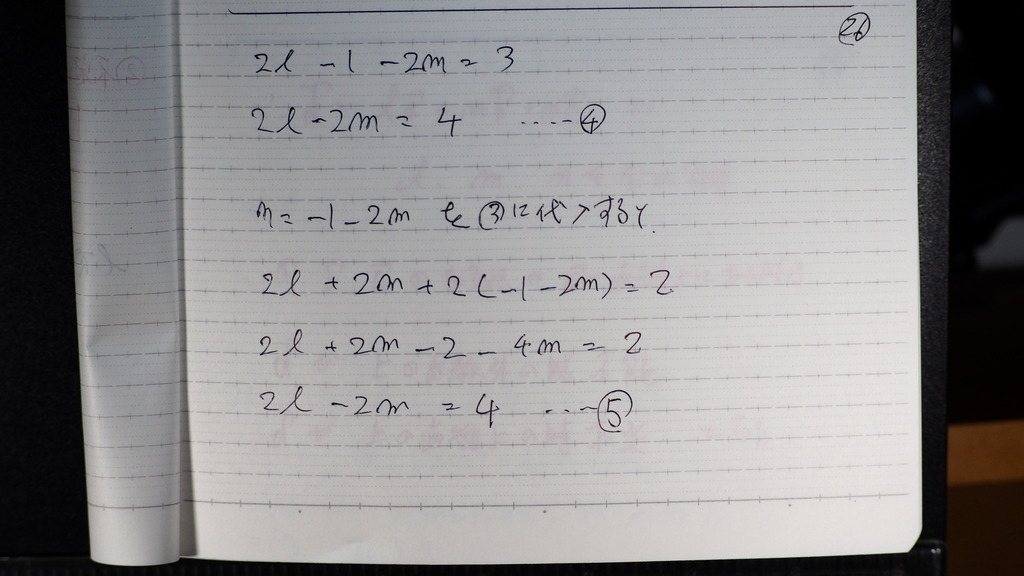 26
2l - 1 - 2m = 3
2l - 2m = 4 ‥‥④
n = -1 - 2m を③に代入すると
2l + 2m + 2(-1 - 2m) = 2
2l + 2m - 2 - 4m = 2
2l - 2m = 4 ‥‥⑤